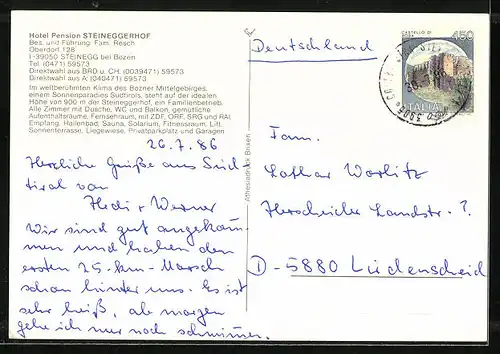 Hotel Pension STEINEGGERHOF
Bes. und Führung: Fam. Resch
Oberdorf 128
I-39050 STEINEGG bei Bozen
Tel. (0471) 59573
Direktwahl aus BRD u. CH: (0039471) 59573
Direktwahl aus A: (040471) 59573
Im weltberühmten Klima des Bozner Mittelgebirges,
einem Sonnenparadies Südtirols, steht auf der idealen
Höhe von 900 m der Steineggerhof, ein Familienbetrieb.
Alle Zimmer mit Dusche, WC und Balkon, gemütliche
Aufenthaltsräume, Fernsehraum, mit ZDF, ORF, SRG und RAI
Empfang. Hallenbad, Sauna, Solarium, Fitnessraum, Lift,
Sonnenterrasse, Liegewiese, Privatparkplatz und Garagen
26.7.86
Herzliche Grüße aus Süd
tirol von
Hedi + Werner
Wir sind gut angekom-
men und haben den
ersten 25-km-Marsch
schon hinter uns. Es ist
sehr heiß, ab morgen
gehe ich nur noch schwimmen.
Athesiadruck Brixen
CASTELLO DI
450
ITALIA
Deutschland
Fam.
Lothar Worlitz
Herscheider Landstr. ?
D-5880 Lüdenscheid